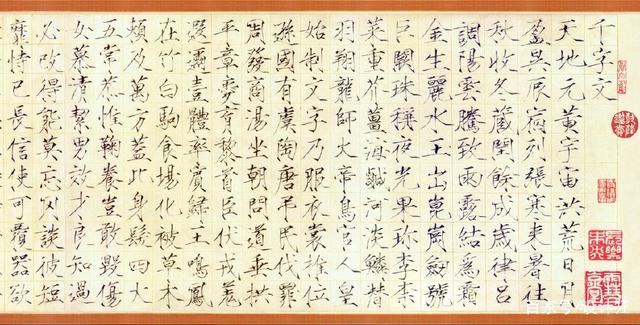 千字文
天地元黄宇宙洪荒日月
盈昃辰宿列張寒来暑往
秋收冬藏閏餘成歲律吕
調陽雲騰致雨露結爲霜
金生麗水玉出崑崗劒號
巨闕珠稱夜光果珍李柰
菜重芥薑海鹹河淡鱗潜
羽翔龍師火帝鳥官人皇
始制文字乃服衣裳推位
遜國有虞陶唐弔民伐罪
周發商湯坐朝問道垂拱
平章愛育黎首臣伏戎羌
遐邇壹體率賓歸王鳴鳳
在竹白駒食場化被草木
賴及萬方蓋此身髮四大
五常恭惟鞠養豈敢毀傷
女慕清絜男效才良知過
必改得能莫忘罔談彼短
靡恃己長信使可覆器欲